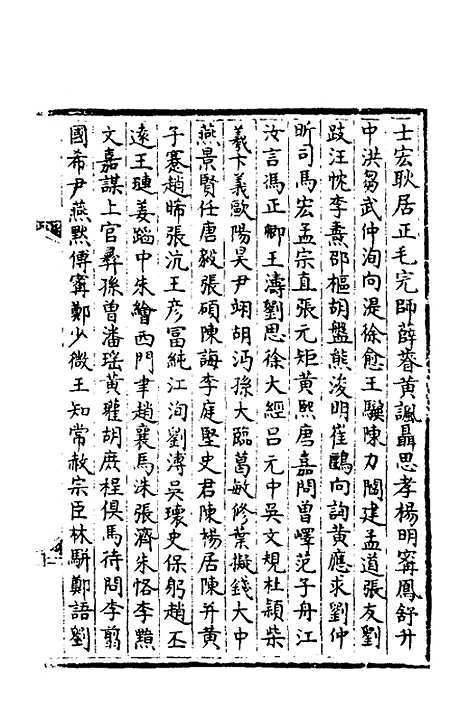 士宏耿居正毛完師薛蓉黃諷聶思孝楊明甯鳳舒升
中洪芻武仲洵向湜徐愈王駥陳力闞建孟道張友劉
跂汪忱李燾邵樞胡盤熊浚明崔鷗向詢黃應求劉仲
昕司馬宏孟宗直張元矩黃熙唐嘉問曾嶧范子舟江
汝言馮正卿王濤劉思徐大經呂元中吳文規杜潁柴
羲卞義歐陽昊尹翊胡沔孫大臨葛敏修葉擬錢大中
燕景賢任唐毅張碩陳誨李庭堅史君陳楊居陳并黃
子蹇趙晞張沆王彥富純江洵劉溥吳瓌史保躬趙丕
遠王璉姜蹈中朱繪西門聿趙襄馬洙張濟朱恪李黯
文嘉謀上官彝孫曾潘瑶黃瓘胡庶程俱馬待問李翦
國希尹燕黙傅甯鄭少微王知常赦宗臣林駢鄭語劉